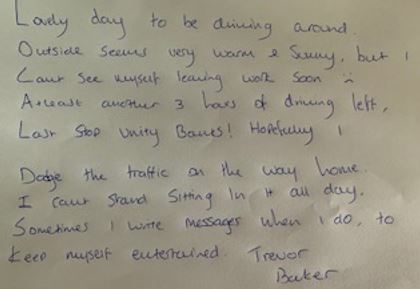 Lovely day to be driving around.
Outside seems very warm & Sunny, but I
Cant see myself leaving work soon :(
Atleast another 3 hours of driving left,
Last Stop Unity Banks! Hopefully I
Dodge the traffic on the way home.
I cant stand Sitting In it all day.
Sometimes I write messages when I do, to
Keep myself entertained. Trevor
Baker